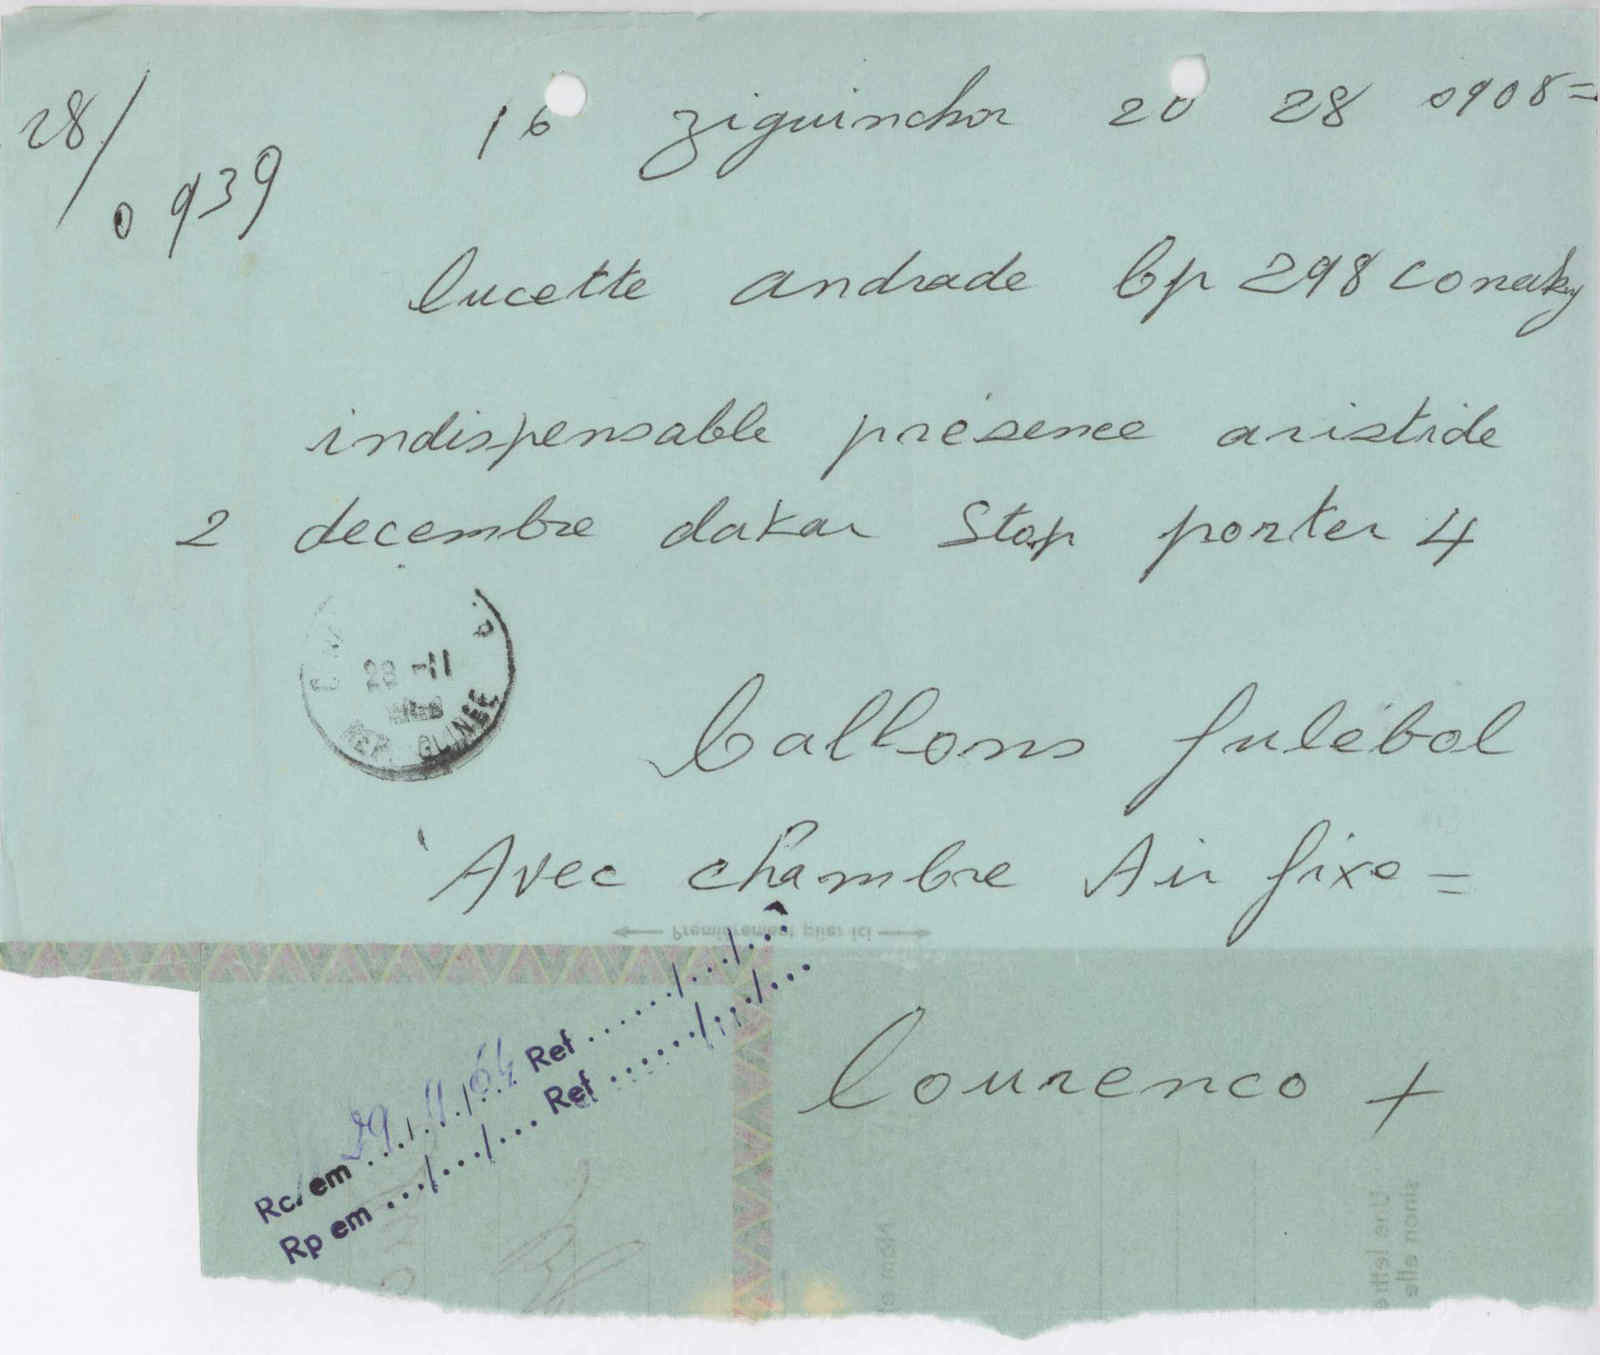 28/
0939
16 ziguinchor 20 28 0908=
lucette andrade bp 298 conaky
indispensable présence aristide
2 decembre dakar Stop porter 4
28 -11
REP. GUINEE
ballons futebol
Avec chambre Air fixe =
Premièrement plier ici
lourenco +
Rc/em 29/11/64 Ref ....../.../...
Rp em .../.../... Ref ....../.../...
Nom et
Une lettre
sinon elle